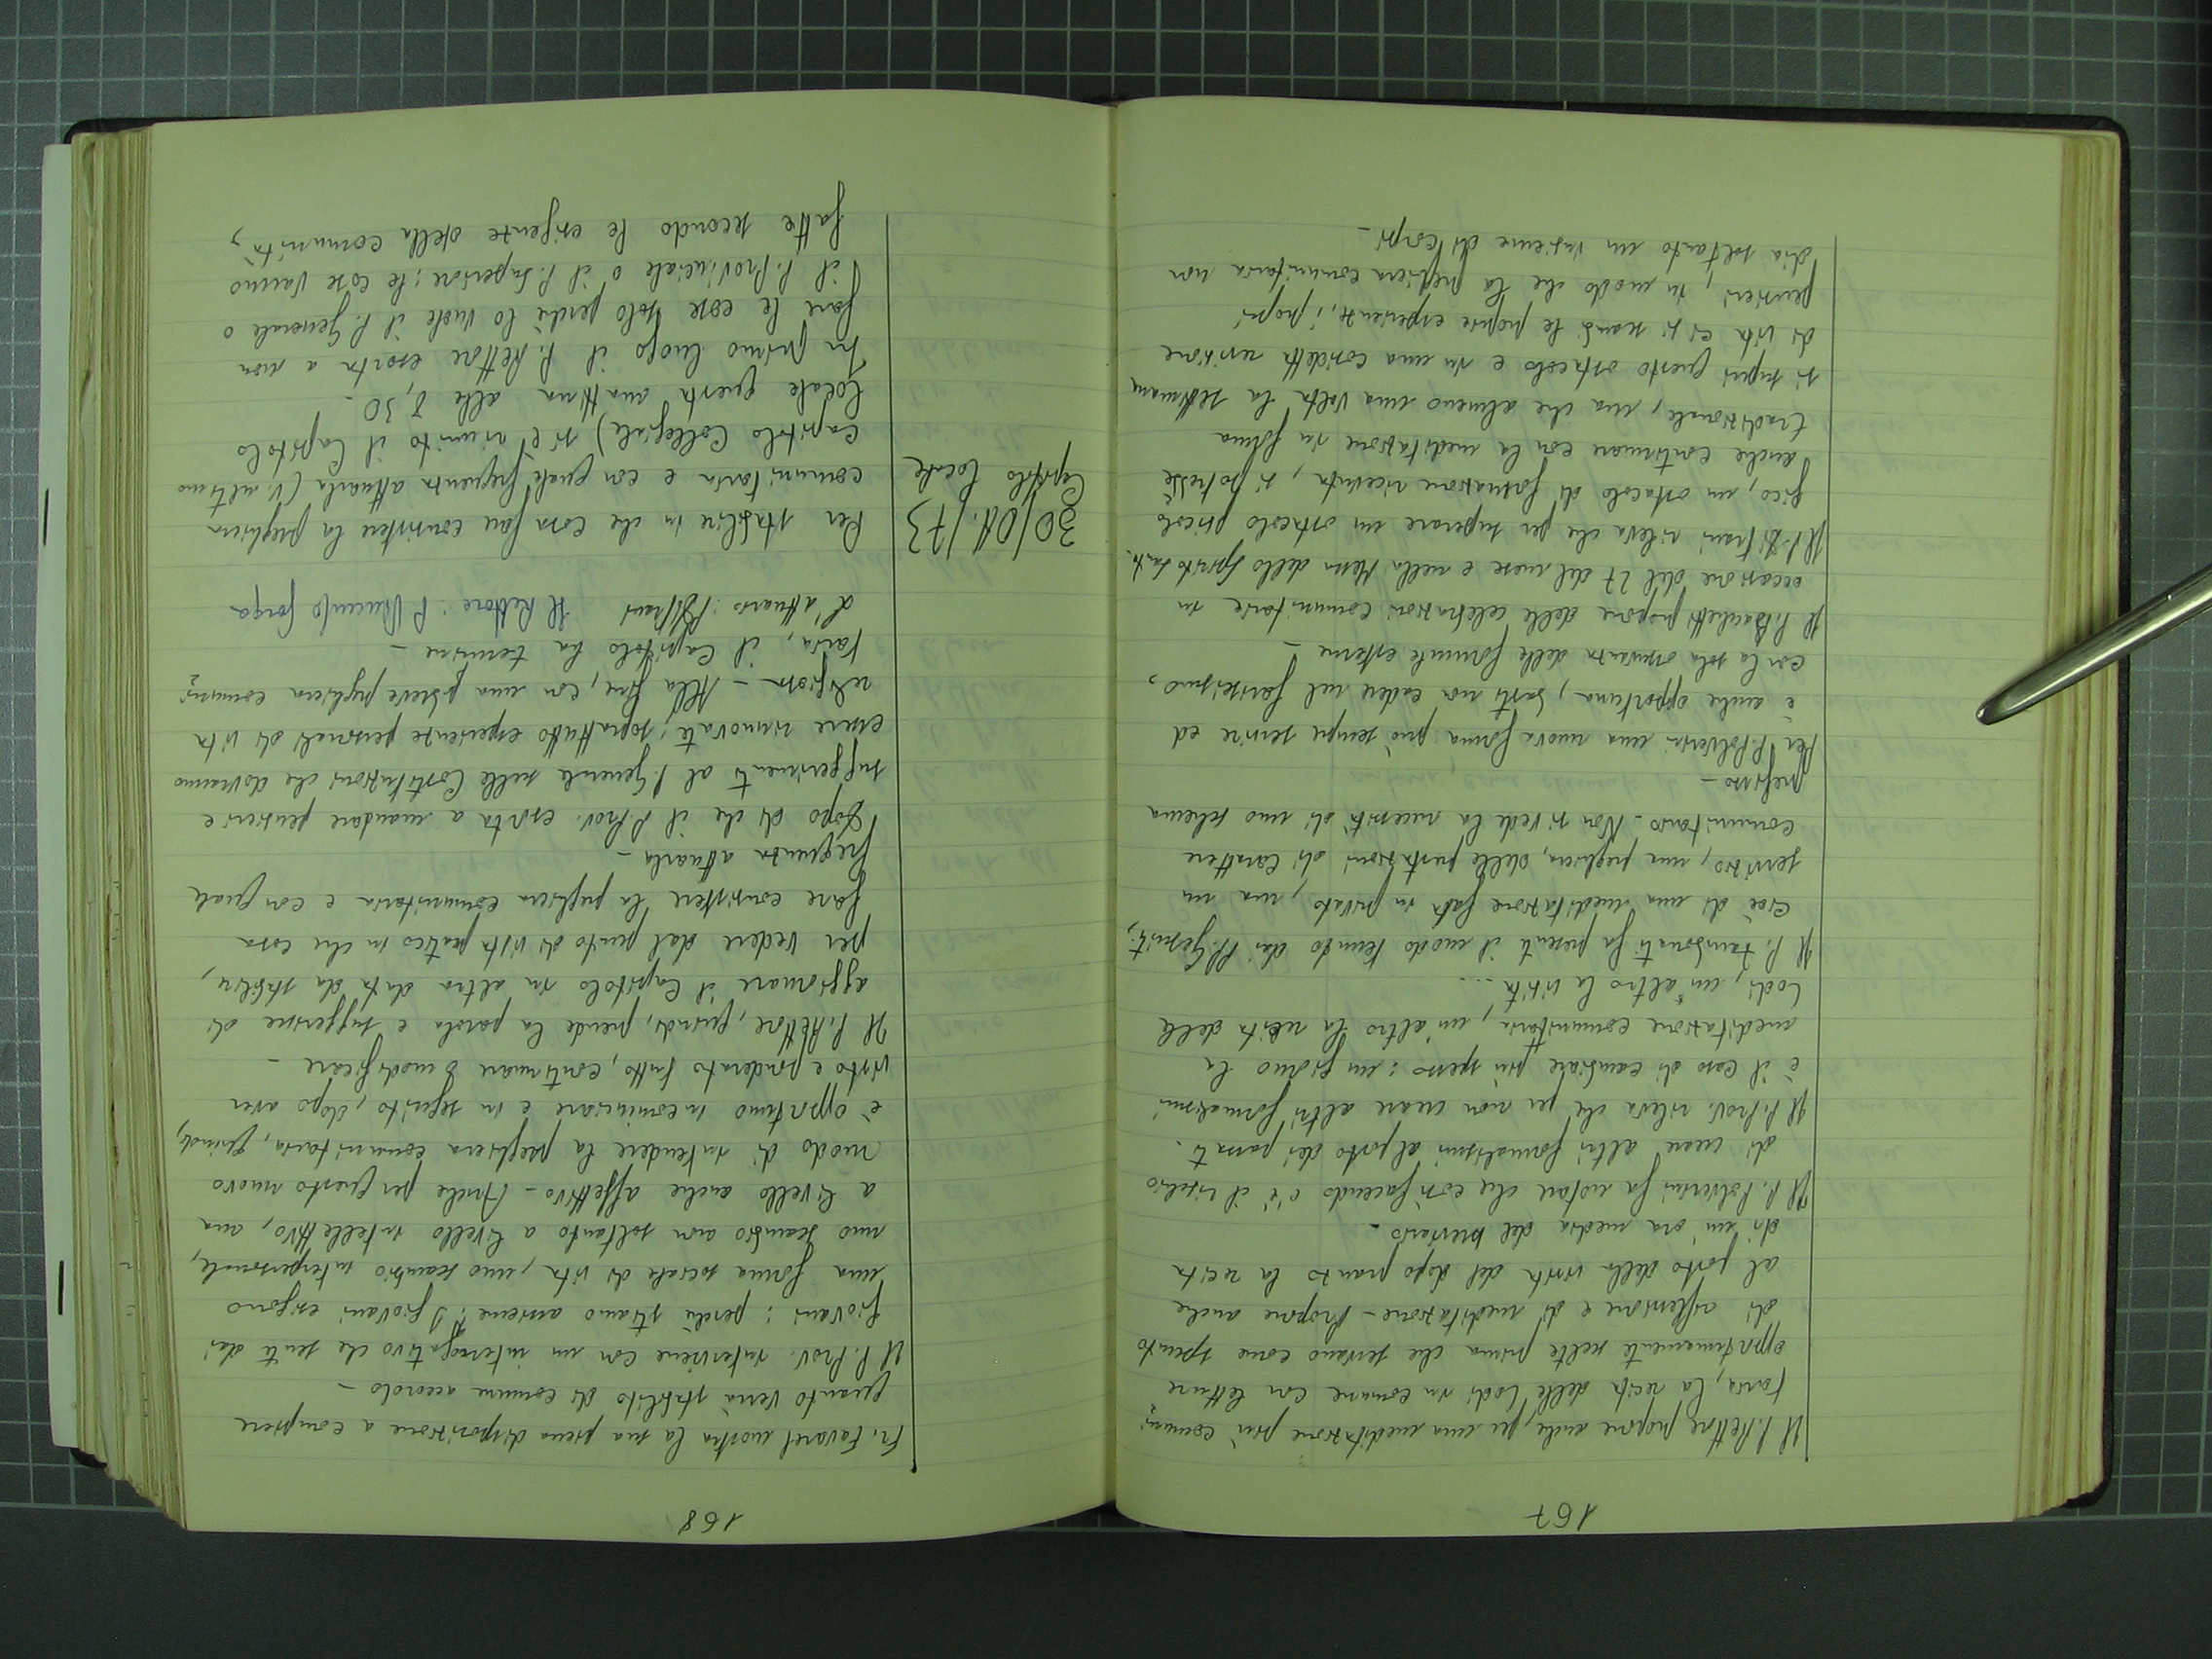 167
Il P. Rettore propone anche, per una meditazione più comuni-
taria, la recita delle Lodi in comune con letture
opportunamente scelte prima che servano come spunto
di riflessione e di meditazione - Propone anche
al posto della visita del dopo pranzo la recita
di un'ora media del breviario -
Il P. Polverini fa notare che così facendo c'è il rischio
di creare altri formalismi al posto dei passati.
Il P. Prov. rileva che per non creare altri formalismi
è il caso di cambiare più spesso: un giorno la
meditazione comunitaria, un'altro la recita delle
Lodi, un'altro la visita ....
Il P. Zambonati fa presenti il modo tenendo dai PP. Gesuiti,
cioè di una meditazione fatta in privato, ma un
servizio, una preghiera, delle prestazioni di carattere
comunitario - Non si vede la necessità di uno schema
prefisso -
Per P. Polverini una nuova forma può sempre servire ed
è anche opportuna, basti non cadere nel fariseismo,
con la sola osservanza delle formule esterne -
Il P. Bauletti propone delle celebrazioni comunitarie in
occasione del 27 del mese e nella Messa dello Spirito Santo.
Il P. Di Trani rileva che per superare un ostacolo psicolo
gico, un ostacolo di formazione ricevuta, si potrebbe
anche continuare con la meditazione in forma
tradizionale, ma che almeno una volta la settimana
si superi questo ostacolo e in una cosidetta revisione
di vita ci si scambi le proprie esperienze, i propri
pensieri, in modo che la preghiera comunitaria non
sia soltanto un insieme di corpi -
168
Fr. Favaret mostra la sua piena disposizione a compiere
quanto verrà stabilito di comune accordo -
Il P. Prov. interviene con un interrogativo che sente dai
giovani: perchè stiamo assieme? I giovani esigono
una forma sociale di vita, uno scambio interpersonale,
uno scambio non soltanto a livello intellettivo, ma
a livello anche affettivo - Anche per questo nuovo
modo di intendere la preghiera comunitaria, quindi,
è opportuno incominciare e in seguito, dopo aver
visto e ponderato tutto, continuare o modificare -
Il P. Rettore, quindi, prende la parola e suggerisce di
aggiornare il Capitolo in altra data da stabilire,
per vedere dal punto di vista pratico in che cosa
fare consistere la preghiera comunitaria e con quale
frequenza attuarla -
Dopo di che il P. Prov. esorta a mandare pensieri e
suggerimenti al P. Generale sulle Costituzioni che dovranno
essere rinnovate; soprattutto esperienze personali di vita
religiosa - Alla fine, con una breve preghiera comuni-
taria, il Capitolo ha termine -
L'attuario: Il Rettore: P. Vincenzo
30/Ott./73
Capitolo locale
Per stabilire in che cosa fare consistere la preghiera
comunitaria e con quale frequenza attuarla (V. ultimo
Capitolo Collegiale) si è riunito il Capitolo
locale questa mattina alle 8,30 -
In primo luogo il P. Rettore esorta a non
fare le cose solo perchè lo vuole il P. Generale o
il P. Provinciale o il P. Superiore: le cose vanno
fatte secondo le esigenze della comunità,